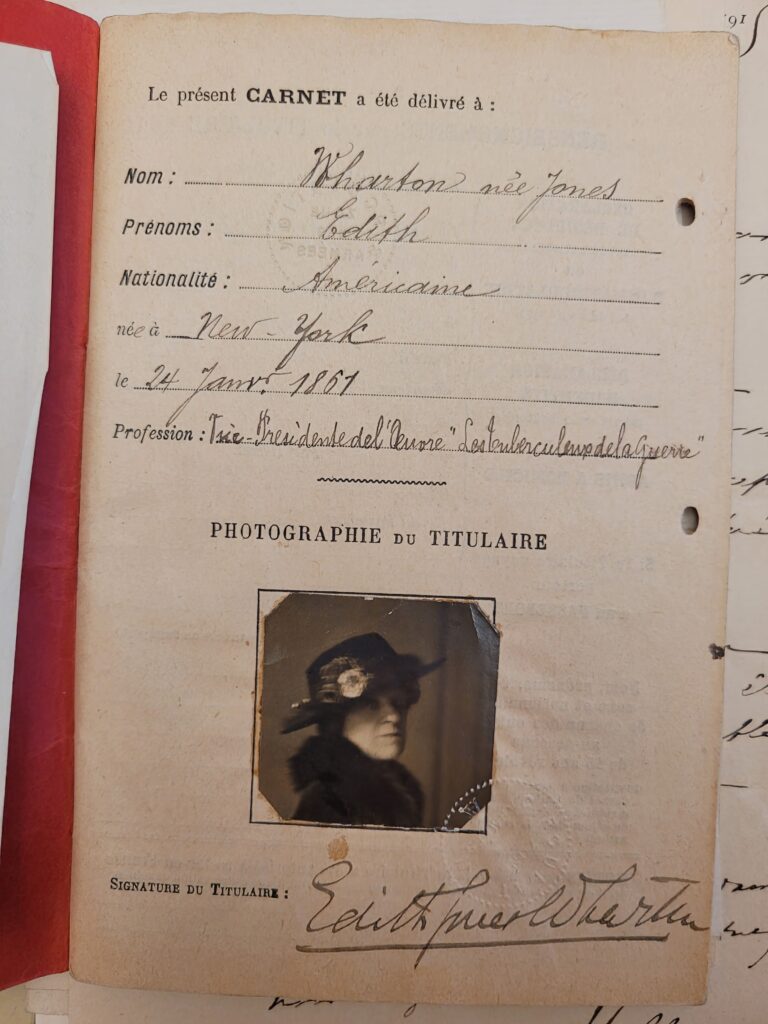 Le présent CARNET a été délivré à :
Nom : Wharton née Jones
Prénoms : Edith
Nationalité : Américaine
née à New-York
le 24 Janvr. 1861
Profession : Vice-Présidente de l'Œuvre "Les tuberculeux de la Guerre"
PHOTOGRAPHIE DU TITULAIRE
SIGNATURE DU TITULAIRE :
Edith Jones Wharton